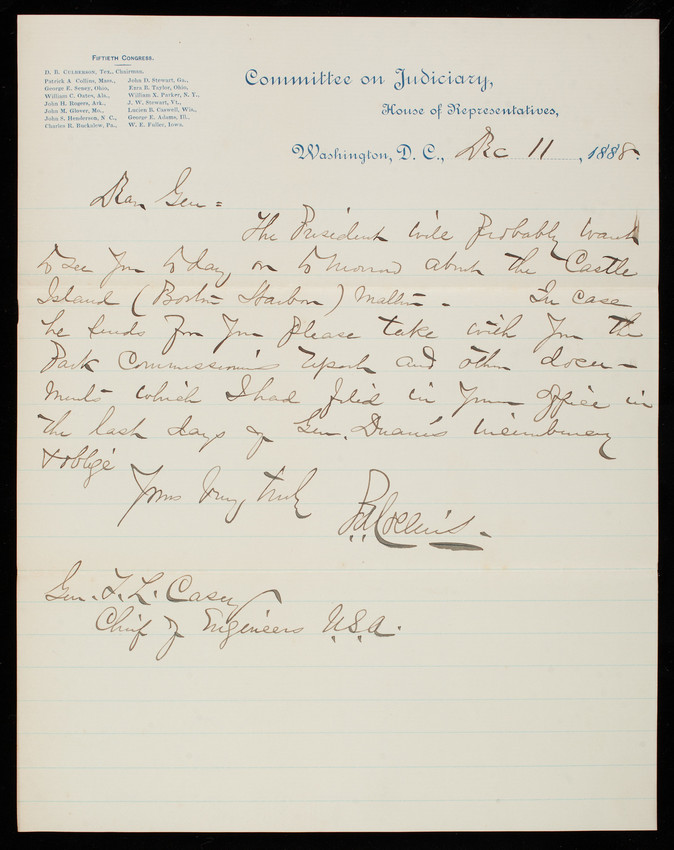 FIFTIETH CONGRESS.
D. B. CULBERSON, Tex., Chairman.
Patrick A. Collins, Mass.,
George E. Seney, Ohio,
William C. Oates, Ala.,
John H. Rogers, Ark.,
John M. Glover, Mo.,
John S. Henderson, N C.,
Charles R. Buckalew, Pa.,
John D. Stewart, Ga.,
Ezra B. Taylor, Ohio,
William X. Parker, N. Y.,
J. W. Stewart, Vt.,
Lucien B. Caswell, Wis.,
George E. Adams, Ill.,
W. E. Fuller, Iowa.
Committee on Judiciary,
House of Representatives,
Washington, D. C., Dec 11, 1888.
Dear Gen =
The President will probably want
to see you to day, or to morrow about the Castle
Island (Boston Harbor) matter. In case
he sends for you please take with you the
Park Commissioners report and other docu-
ments which I had filed in your office in
the last days of Gen. Duane's incumbency
& oblige
Yours very truly
P A Collins.
Gen. T. L. Casey
Chief of Engineers U.S.A.